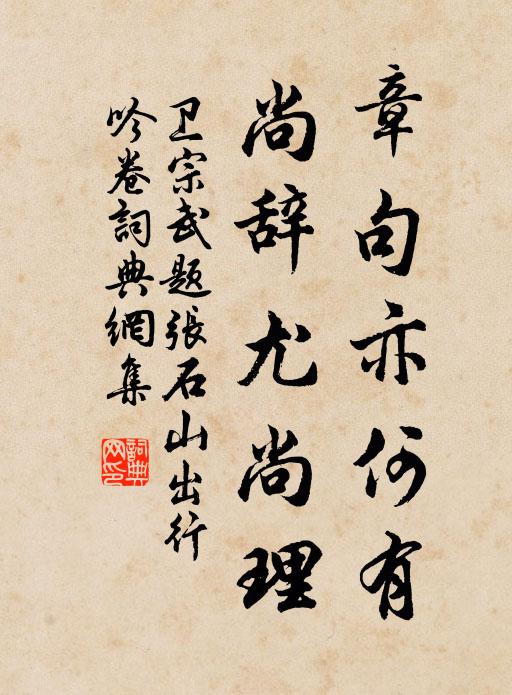 章句亦何有
尚辞尤尚理
卫宗武题张石山出行
吟卷詞典網集
詞典网印